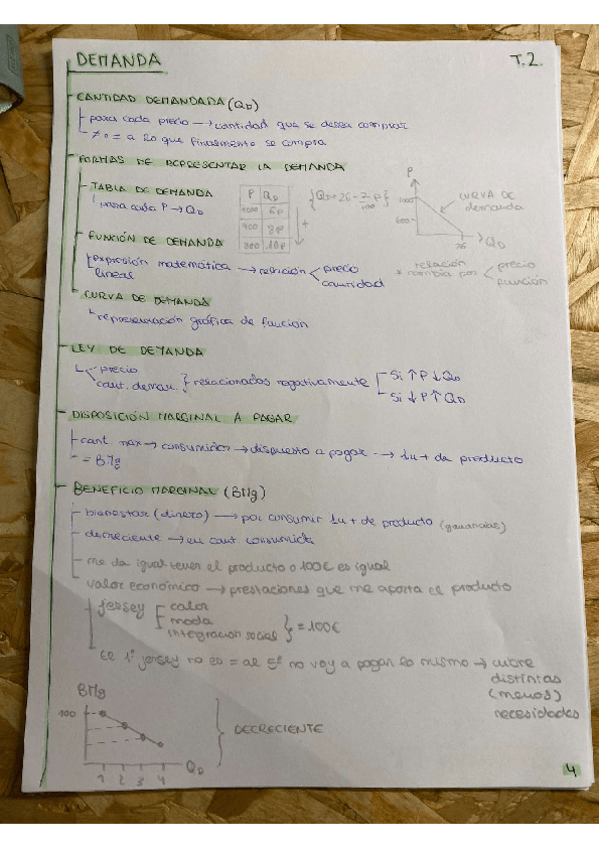 DEMANDA T.2.
CANTIDAD DEMANDADA (QD)
para cada precio → cantidad que se desea comprar
≠ o = a lo que finalmente se compra
FORMAS DE REPRESENTAR LA DEMANDA
TABLA DE DEMANDA
para cada P → QD
P QD
1000 6P
900 8P
800 10P
+
P
1000
CURVA DE demanda
26 QD
FUNCIÓN DE DEMANDA
expresión matemática → relación < precio cantidad
lineal
* relación cambia por < precio función
CURVA DE DEMANDA
representación gráfica de función
LEY DE DEMANDA
precio
cant. deman. } relacionados negativamente
Si ↑ P ↓ QD
Si ↓ P ↑ QD
DISPOSICIÓN MARGINAL A PAGAR
cant. max → consumidor → dispuesto a pagar → 1u + de producto
= BMg
BENEFICIO MARGINAL (BMg)
bienestar (dinero) → por consumir 1u + de producto (ganancias)
decreciente → en cant. consumida
me da igual tener el producto o 100€ es igual
valor económico → prestaciones que me aporta el producto
jersey [ calor
moda
integracion social } = 100€
el 1º jersey no es = al 5º no voy a pagar lo mismo → cubre
distintas
(menos)
necesidades
BMg
100
1 2 3 4 QD
DECRECIENTE
4